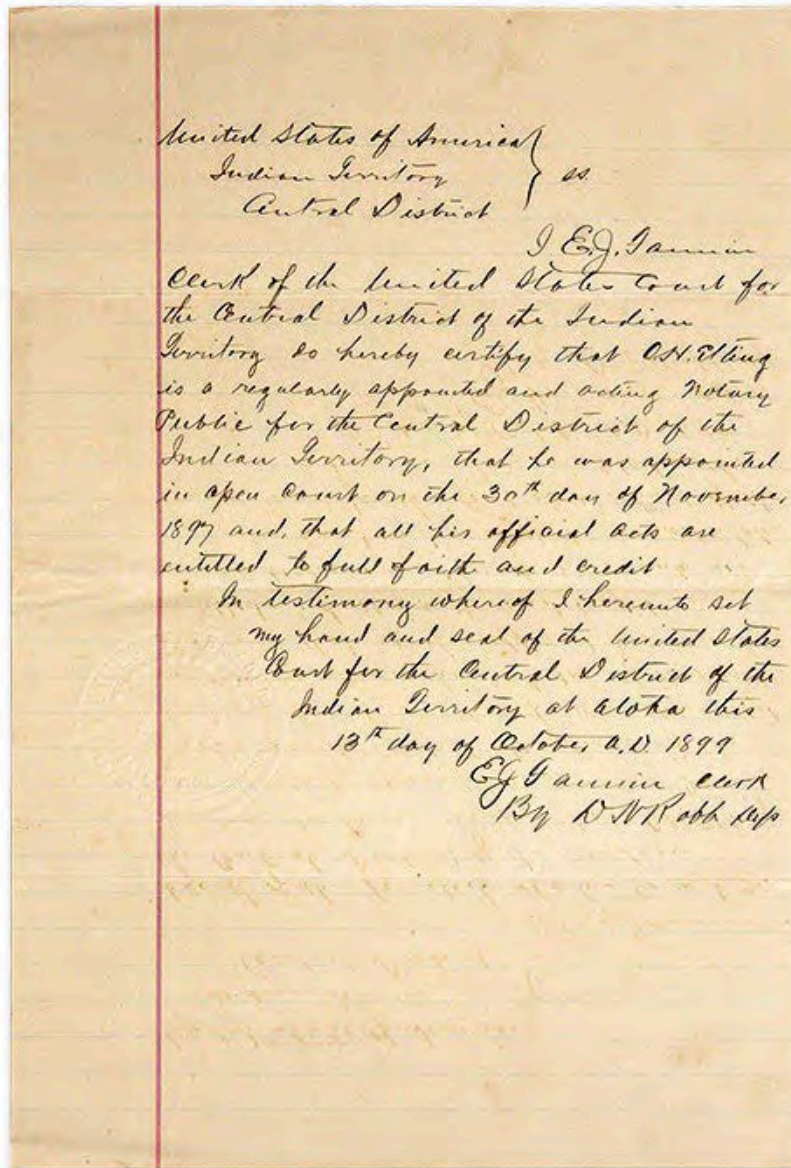 United States of America
Indian Territory } ss.
Central District
I E.J. Fannin
Clerk of the United States Court for
the Central District of the Indian
Territory do hereby certify that O.H. Elting
is a regularly appointed and acting Notary
Public for the Central District of the
Indian Territory, that he was appointed
in open Court on the 30th day of November
1897 and, that all his official acts are
entitled to full faith and credit
In testimony whereof I hereunto set
my hand and seal of the United States
Court for the Central District of the
Indian Territory at Atoka this
13th day of October A.D. 1899
E J Fannin Clerk
By D N Robb Dep